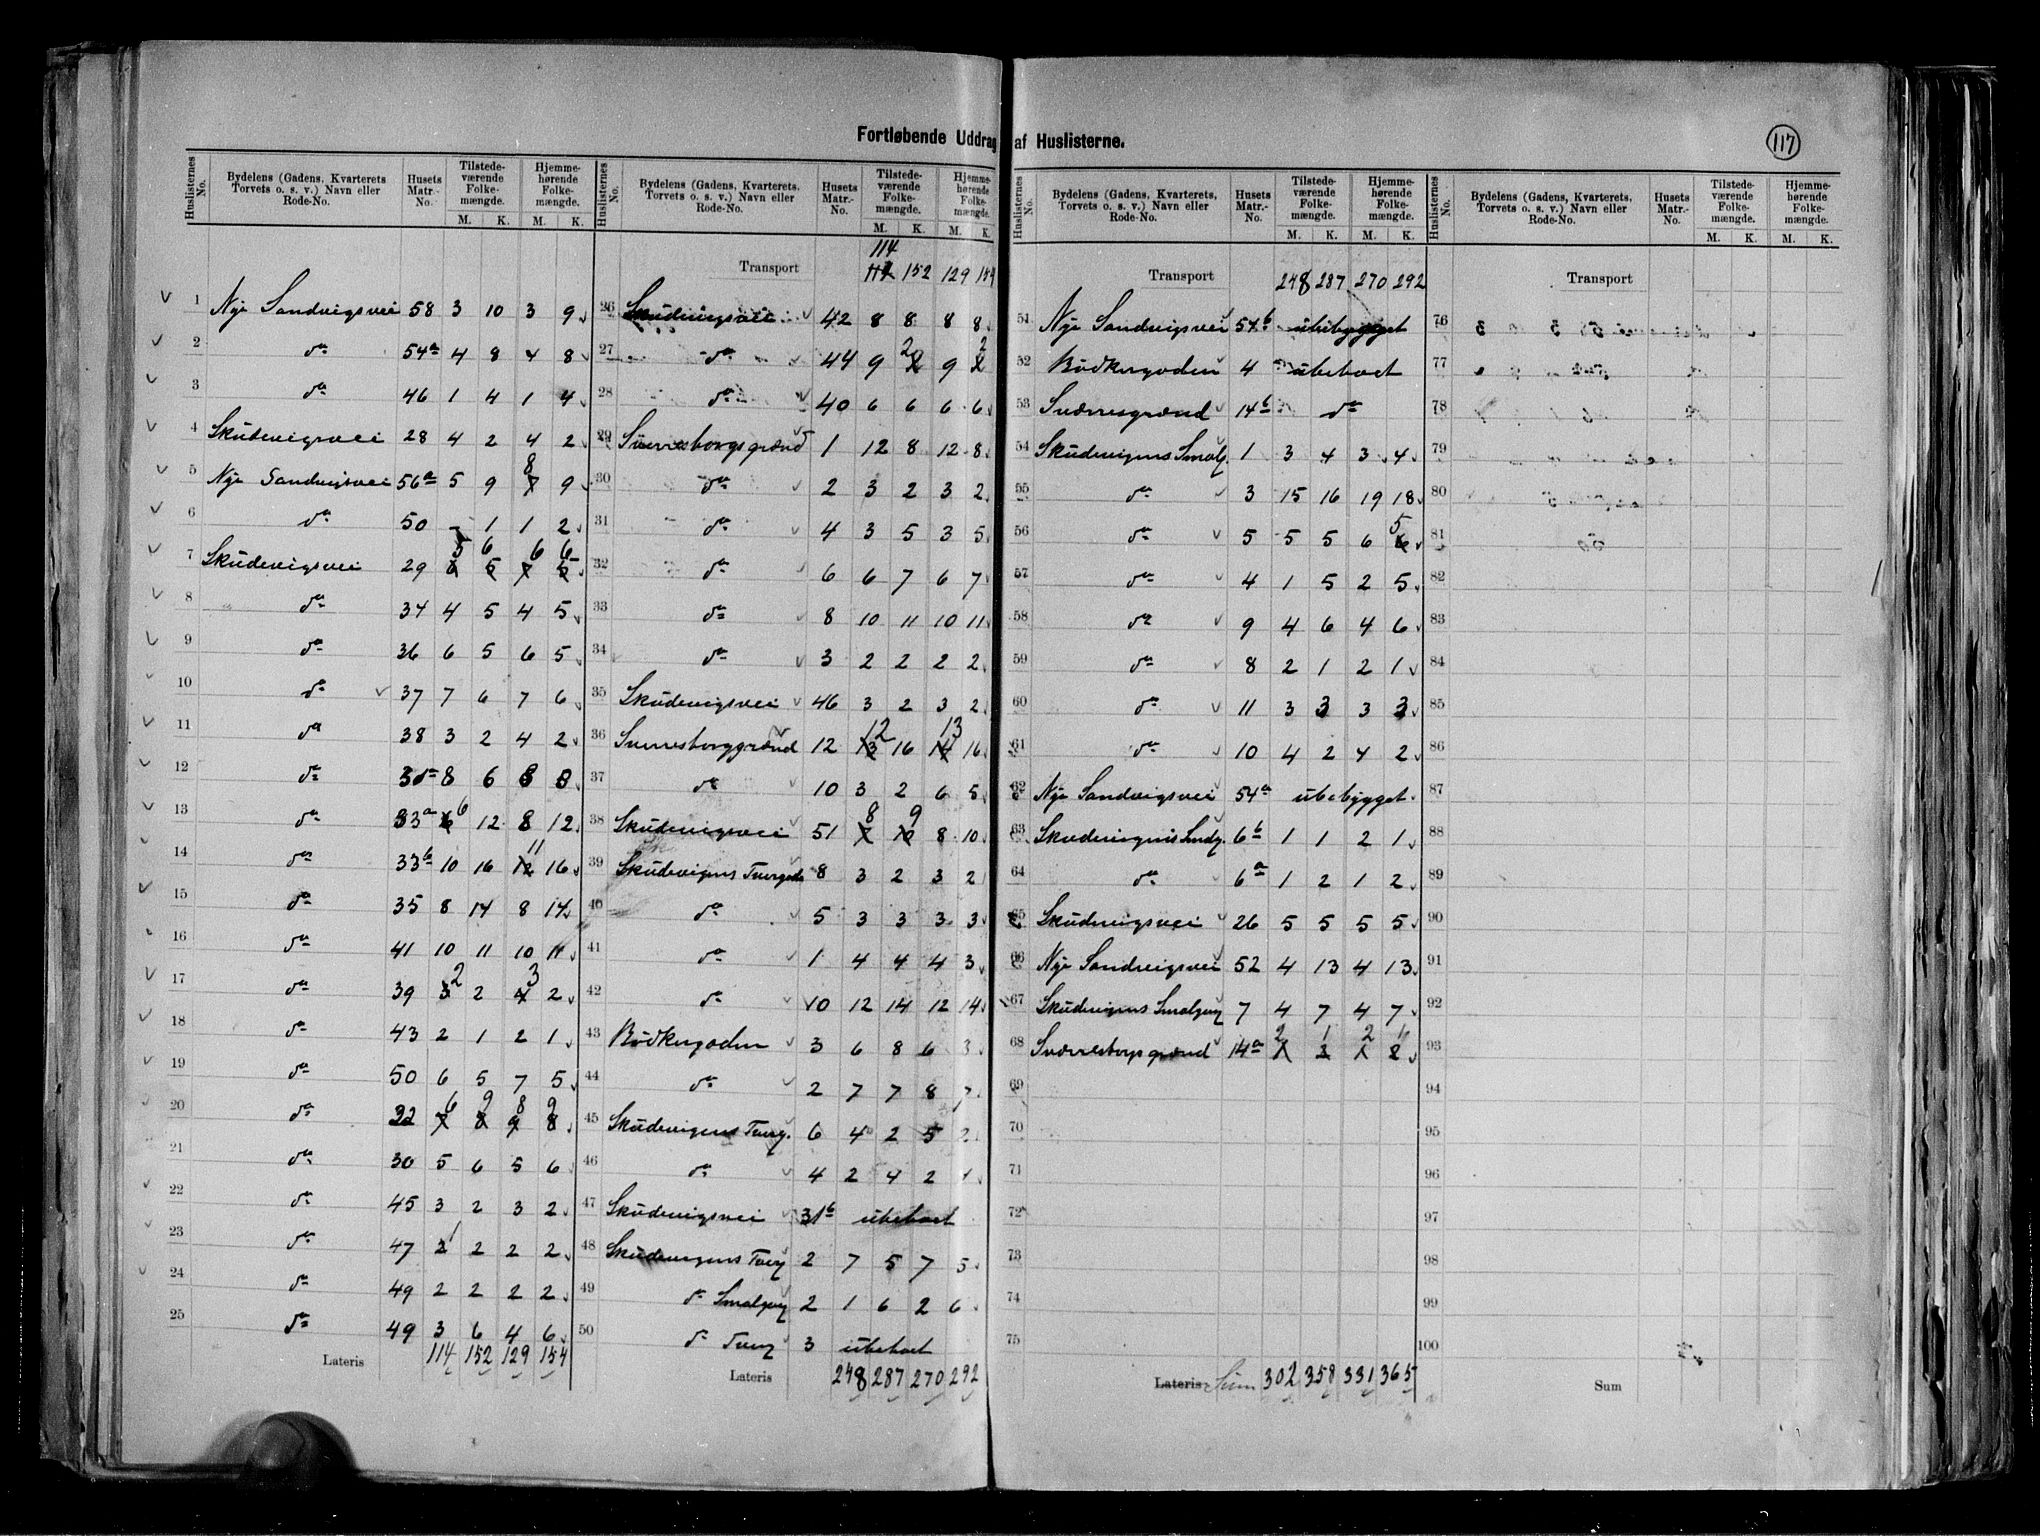 Fortløbende Uddrag af Huslisterne.
117
Huslisternes No. Bydelens (Gadens, Kvarterets, Torvets o. s. v.) Navn eller Rode-No. Husets Matr.-No. Tilstedeværende Folkemængde. M. K. Hjemmehørende Folkemængde. M. K.
1 Nye Sandvigsvei 58 3 10 3 9
2 do 54a 4 8 4 8
3 do 46 1 4 1 4
4 Skudevigsvei 28 4 2 4 2
5 Nye Sandvigsvei 56a 5 9 8 9
6 do 50 - 1 1 2
7 Skudevigsvei 29 5 6 6 6
8 do 34 4 5 4 5
9 do 36 6 5 6 5
10 do 37 7 6 7 6
11 do 38 3 2 4 2
12 do 8 6 8 8
13 do 33a 6 12 8 12
14 do 33b 10 16 11 16
15 do 35 8 14 8 14
16 do 41 10 11 10 11
17 do 39 2 2 3 2
18 do 43 2 1 2 1
19 do 50 6 5 7 5
20 do 32 6 9 8 9
21 do 30 5 6 5 6
22 do 45 3 2 3 2
23 do 47 1 2 2 2
24 do 49 2 2 2 2
25 do 49 3 6 4 6
Lateris 114 152 129 154
Huslisternes No. Bydelens (Gadens, Kvarterets, Torvets o. s. v.) Navn eller Rode-No. Husets Matr.-No. Tilstedeværende Folkemængde. M. K. Hjemmehørende Folkemængde. M. K.
Transport 114 152 129 154
26 Skudevigsvei 42 8 8 8 8
27 do 44 9 2 9 2
28 do 40 6 6 6 6
29 Sverresborgsgrænd 1 12 8 12 8
30 do 2 3 2 3 2
31 do 4 3 5 3 5
32 do 6 6 7 6 7
33 do 8 10 11 10 11
34 do 3 2 2 2 2
35 Skudevigsvei 46 3 2 3 2
36 Sverresborggrænd 12 12 16 13 16
37 do 10 3 2 6 5
38 Skudevigsvei 51 8 9 8 10
39 Skudevigens Tvergade 8 3 2 3 2
40 do 5 3 3 3 3
41 do 1 4 4 4 3
42 do 10 12 14 12 14
43 Bødkergaden 3 6 8 6
44 do 2 7 7 8 7
45 Skudevigens Tverg. 6 4 2 5 2
46 do 4 2 4 2
47 Skudevigsvei 31b ubeboet
48 Skudevigens Tverg 2 7 5 7 5
49 do Smalgang 2 1 6 2 6
50 do Tverg 3 ubeboet
Lateris 248 287 270 292
Huslisternes No. Bydelens (Gadens, Kvarterets, Torvets o. s. v.) Navn eller Rode-No. Husets Matr.-No. Tilstedeværende Folkemængde. M. K. Hjemmehørende Folkemængde. M. K.
Transport 248 287 270 292
51 Nye Sandvigsvei 54b ubebygget
52 Bødkergaden 4 ubeboet
53 Sværresgrænd 14b do
54 Skudevigens Smalg. 1 3 4 3 4
55 do 3 15 16 19 18
56 do 5 5 5 6 5
57 do 4 1 5 2 5
58 do 9 4 6 4 6
59 do 8 2 1 2 1
60 do 11 3 3 3 3
61 do 10 4 2 4 2
62 Nye Sandvigsvei 54a ubebygget.
63 Skudevigens Smalg. 6b 1 1 2 1
64 do 6a 1 2 1 2
65 Skudevigsvei 26 5 5 5 5
66 Nye Sandvigsvei 52 4 13 4 13
67 Skudevigens Smalgang 7 4 7 4 7
68 Sværresborgsgrænd 14a 2 1 2 1
69
70
71
72
73
74
75
Lateris Sum 302 358 331 365
Huslisternes No. Bydelens (Gadens, Kvarterets, Torvets o. s. v.) Navn eller Rode-No. Husets Matr.-No. Tilstedeværende Folkemængde. M. K. Hjemmehørende Folkemængde. M. K.
Transport
76
77
78
79
80
81
82
83
84
85
86
87
88
89
90
91
92
93
94
95
96
97
98
99
100
Sum